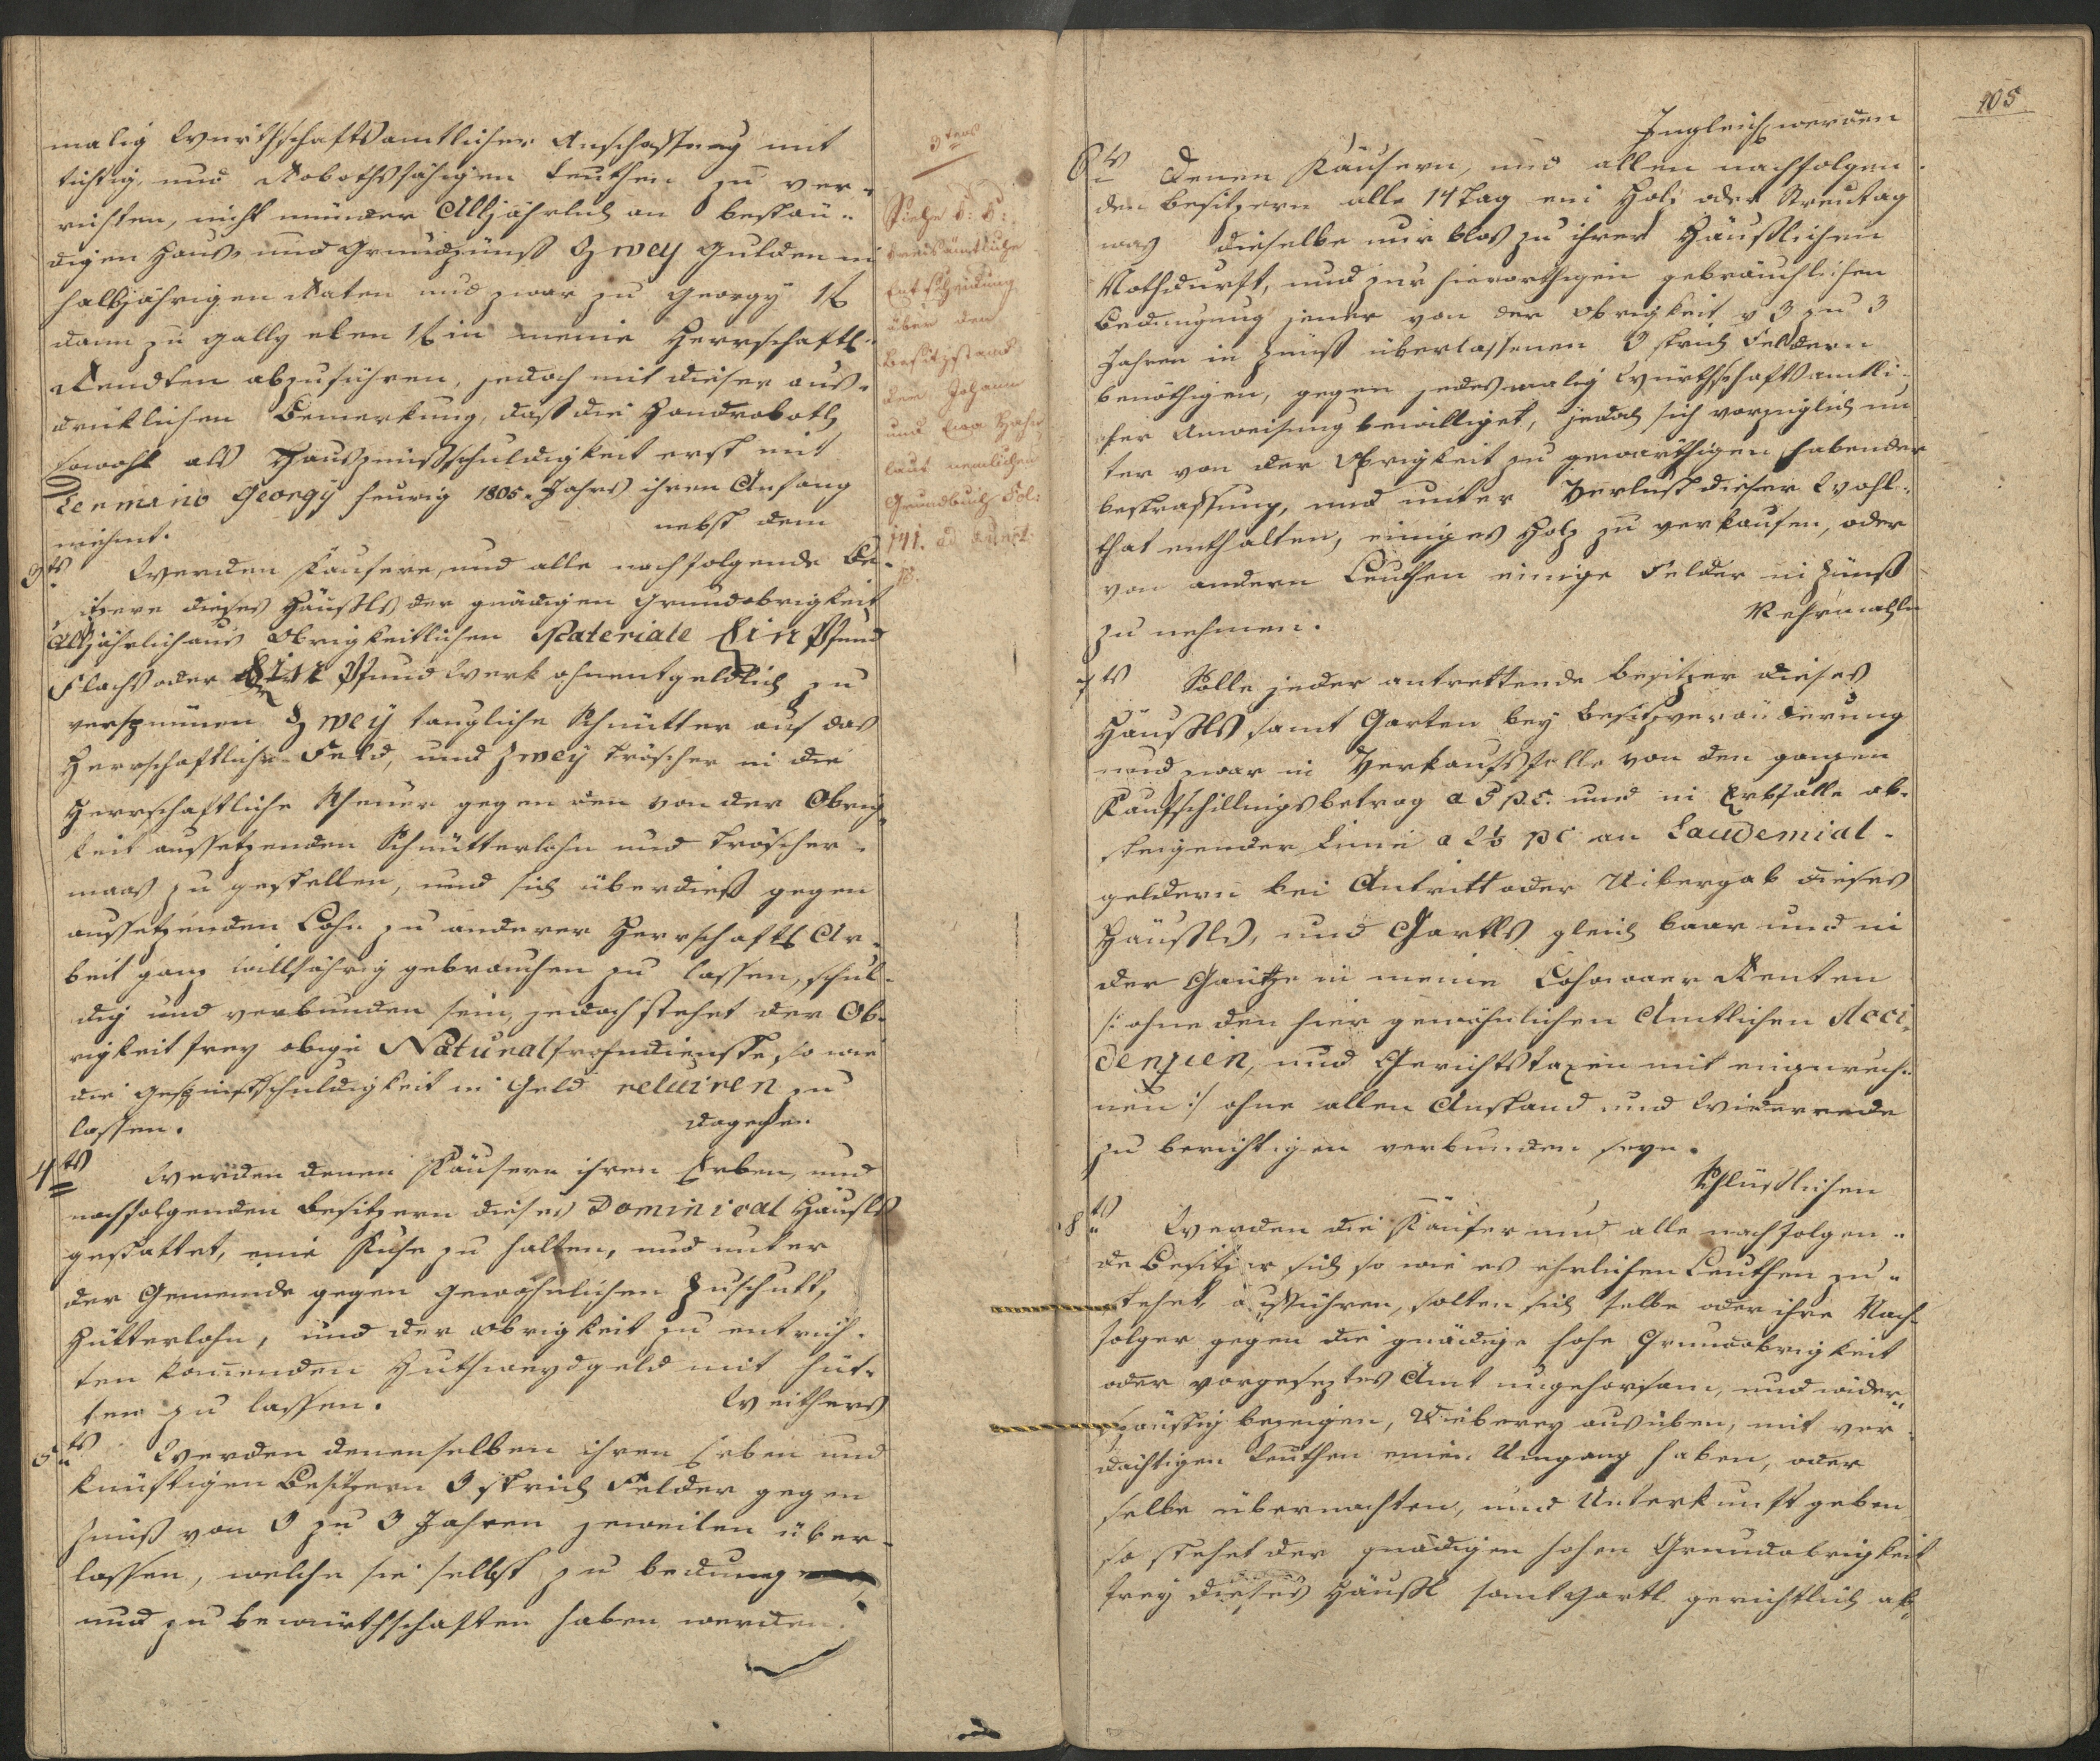 malig Würthschaftsamtlicher Anschaffung mit
tichtig, und Robothsfähigen Leuthen zu ver-
richten, nicht münder Alljährlich an bestän-
digen Haus und Grundzünß Zwey Gulden in
halbjährigen Raten und zwar zu Georgy 1 f
dann zu Gally eben 1 f in meine Herrschaftl.
Rendten abzuführen, jedoch mit dieser aus-
drüklichen Bemerkung, daß die Handroboth
sowohl als Hauszinßschuldigkeit erst mit
Termino Georgy heurig 1805. Jahrs ihren Anfang
niehmt.
nebst dem
3ts Werden Käufere, und alle nachfolgende Be-
sitzere dieses Häußls der gnädigen Grundobrigkeit
Alljährlich aus Obrigkeitlichen Materiale Ein Pfund
Flachs oder Ein Pfund Werk ohnentgeldlich zu
verspinnen Zwey taugliche Schnütter auf das
Herrschaftliche Feld, und Zwey Tröscher in die
Herrschaftliche Scheuer gegen den von der Obrig-
keit aussetzenden Schnütterlohn und Tröscher-
maas zu gestellen, und sich überdieß gegen
aussetzenden Lohn zu anderer Herrschafts Ar-
beit ganz willfährig gebrauchen zu lassen, schul-
dig und verbunden sein, jedoch stehet der Ob-
rigkeit frey obige Naturalfrohndienste, so wie
die Gespinstschuldigkeit in Geld reluiren zu
lassen.
dagegen
4ts Werden denen Käufern ihren Erben, und
nachfolgenden Besitzern dieses Dominical Häußls
gestattet, eine Kuhe zu halten, und unter
der Gemeinde gegen gewöhnlichen Zuschutt,
Hütterlohn, und der Obrigkeit zu entrich-
ten komenden Huthweydgeld mit hüt-
ten zu lassen.
Weithers
5ts Werden denenselben ihren Erben und
künftigen Besitzern 3 Strich Felder gegen
Zinß von 3 zu 3 Jahren jeweilen über-
lassen, welche sie selbst zu bedungen
und zu bewürthschaften haben werden.
3tens
Siehe k: k:
kreisämtliche
Entscheidung
über den
Besitzstand
dem Johann
und Eva Hahn
laut nemlichen
Grundbuch Fol:
141.
105
Ingleich werden
6ts Denen Käufern, und allen nachfolgen
den Besitzern alle 14 Tag ein Holz oder Streutag
was dieselbe nur blos zu ihrer Häußlichen
Nothdurft, und zur hierorthigen gebräuchlichen
Bedungung jener von der Obrigkeit v 3 zu 3
Jahren in Zinß überlassenen 3 Strich Feldern
benöthigen, gegen jedesmalig Würthschaftsamtli-
cher Anweisung bewilliget, jedoch sich vorzüglich un
ter von der Obrigkeit zu gewarthigen habender
bestraffung, und unter Verlust dieser Wohl-
that enthalten, einiges Holz zu verkaufen, oder
von andern Leuthen einige Felder in Zinß
zu nehmen.
Mehrmahln
7ts Solle jeder antrettende Besitzer dieses
Häußls, samt Garten bey Besitzveränderung
und zwar in Verkaufsfalle von den ganzen
Kaufschillingsbetrag a 5 p.C. und in Erbfälle ab-
steigender Linie a 2½ pC an Laudemial-
geldern bei Antritt oder Uibergab dieses
Häußls, und Gartls gleich baar und in
der Gäntze in meine Renten
/: ohne den hier gewöhnlichen Amtlichen Acci
denzien, und Gerichtstaxen mit einzurech-
nen :/ ohne allen Anstand und Wiederrede
zu berichtigen verbunden seyn.
Schlüßlichen
8ts Werden die Käufer und alle nachfolgen-
de Besitzer sich so wie es ehrlichen Leuthen zu-
stehet aufführen, solten sich selbe oder ihre Nach-
folger gegen die gnädige hohe Grundobrigkeit
oder vorgeseztes Amt ungehorsam, und wider-
spänstig bezeigen, Dieberey ausüben, mit ver
dächtigen Leuthen einen Umgang haben, oder
selbe übernachten, und Unterkunft geben
so stehet der gnädigen hohen Grundobrigkeit
frey dieses Häußl samt Gartl gerichtlich ab